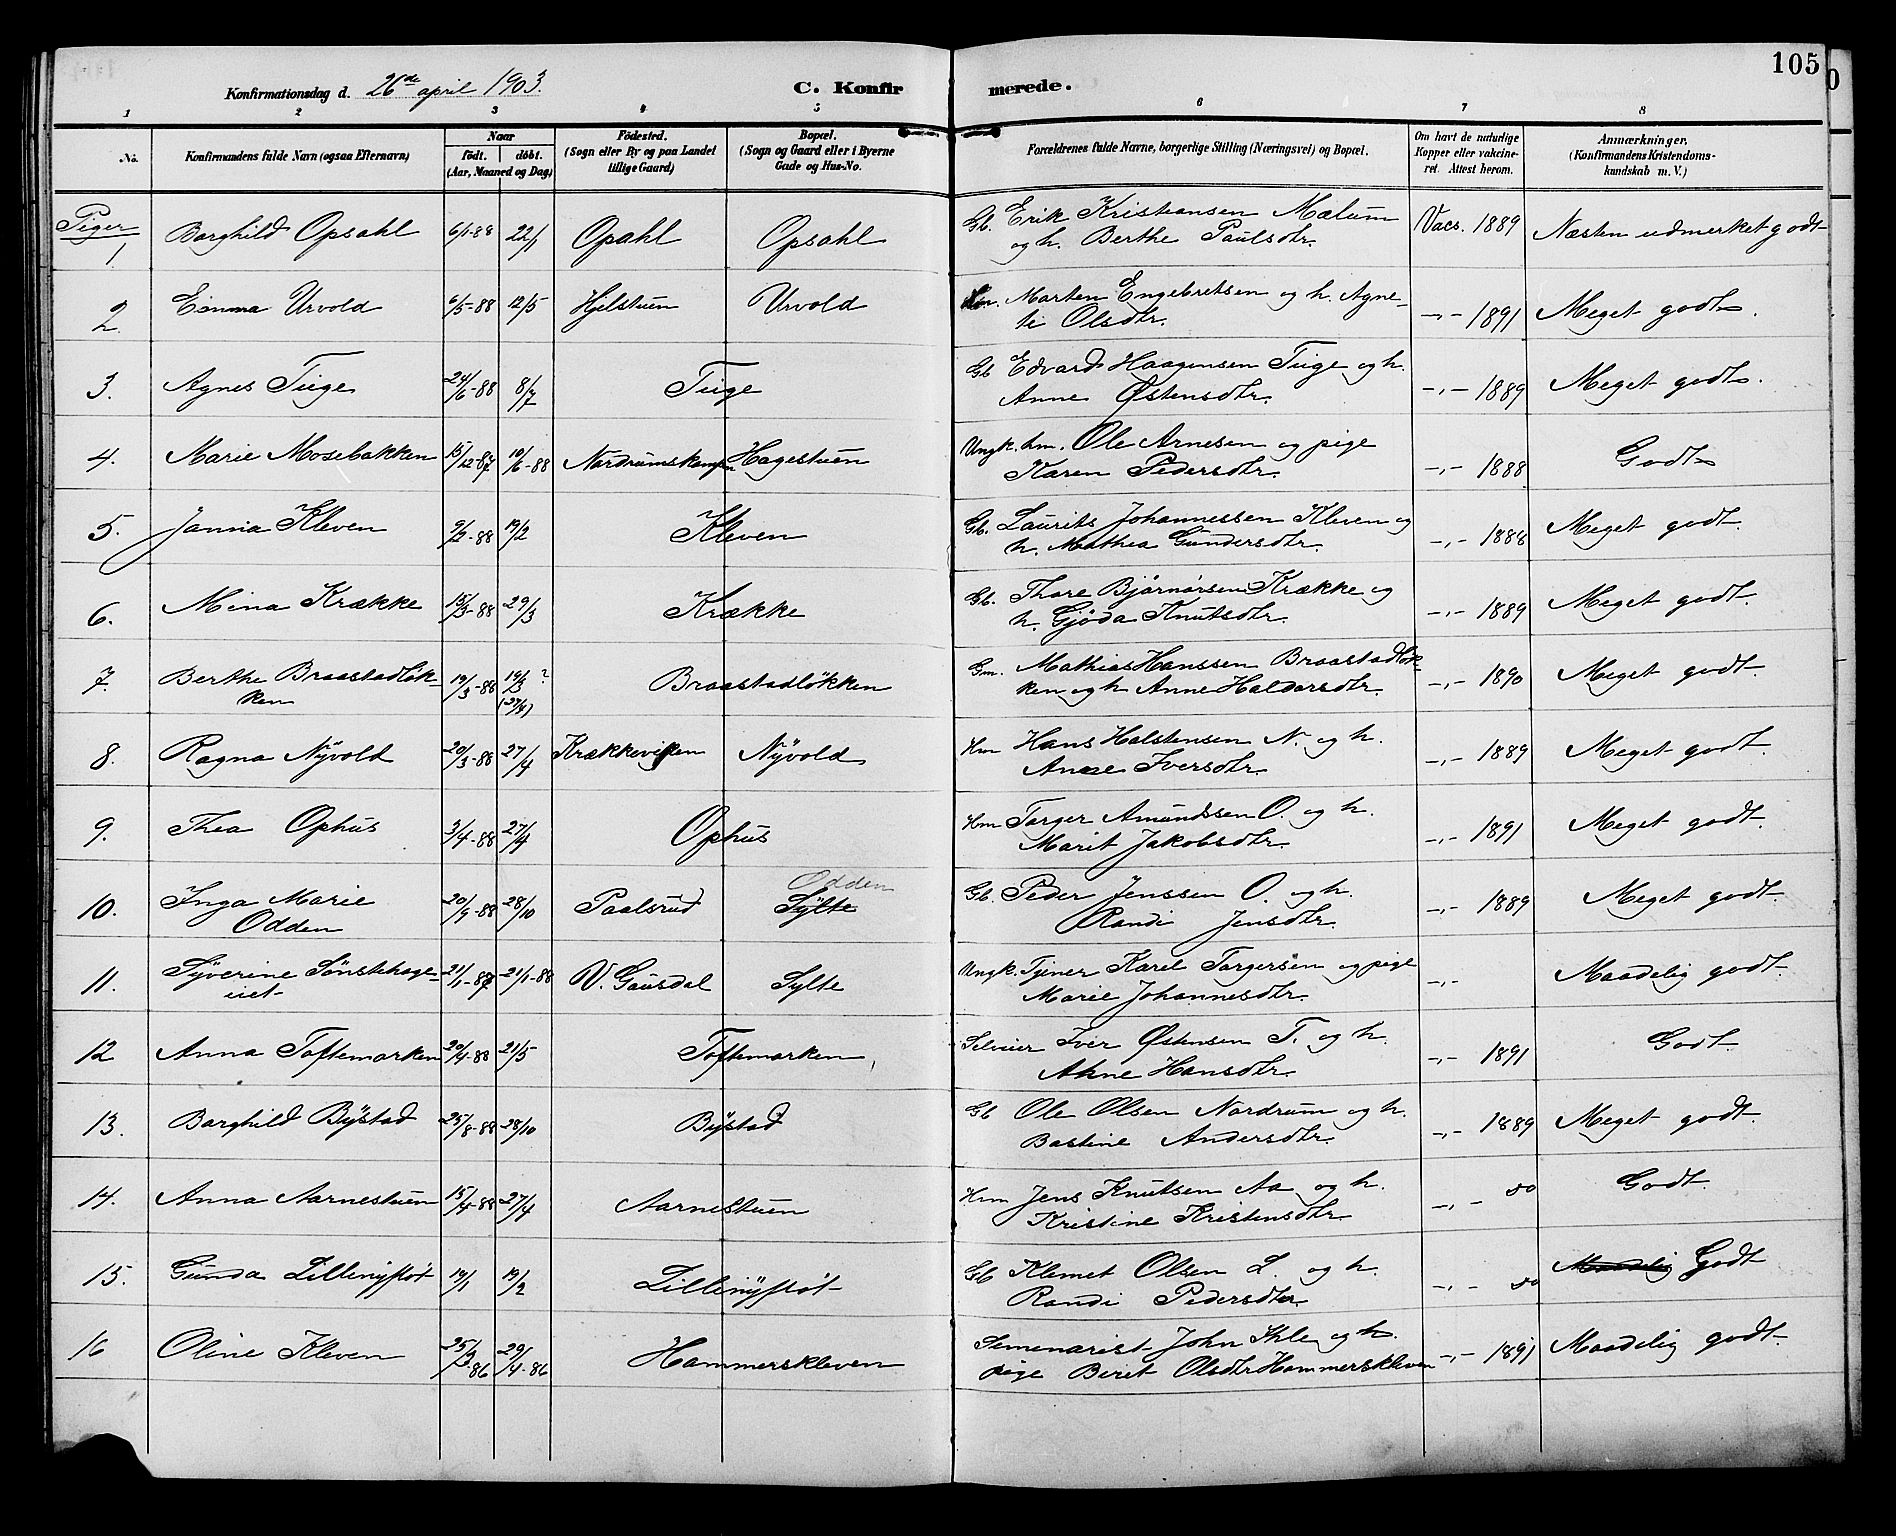 105
Konfirmationsdag d. 26de april 1903. C. Konfirmerede.
1 2 3 4 5 6 7 8
No. Konfirmandens fulde Navn (ogsaa Efternavn) Naar födt. döbt. (Aar, Maaned og Dag) Födested. (Sogn eller By og paa Landet tillige Gaard) Bopæl. (Sogn og Gaard eller i Byerne Gade og Hus-No. Forældrenes fulde Navne, borgerlige Stilling (Næringsvei) og Bopæl. Om havt de naturlige Kopper eller vakcineret. Attest herom. Anmærkninger. (Konfirmandens Kristendomskundskab m. V.)
Piger
1. Borghild Opsahl 6/1-88 22/1 Opahl Opsahl Gb. Erik Kristiansen Mælum Vacs. 1889 Næsten udmerket godt
og h. Berthe Paulsdtr.
2. Emma Urvold 6/5-88 12/5 Hjelstuen Urvold Marten Engebretsen og h. Agne- -„- 1891 Meget godt.
te Olsdtr.
3. Agnes Tuge 24/6-88 8/7 Tuge Gb Edvard Haagensen Tuge og h. -„- 1889 Meget godt.
Anne Østensdtr.
4. Marie Mosebakken 15/12-87 10/6-88 Nordrumskampen Hagestuen Ungk. hm. Ole Arnesen og pige -„- 1888 Godt
Karen Pedersdtr.
5. Janna Kleven 9/2-88 19/2 Kleven Gb. Laurits Johannessen Kleven og -„- 1888 Meget godt.
h. Mathea Gundersdtr.
6. Mina Krække 15/3-88 29/3 Krække Gb. Thore Bjørnørsen Krække og -„- 1889 Meget godt.
h. Gjöda Knutsdtr.
7. Berthe Braastadløk- 19/3-88 19/3 ? Braastadløkken Gm. Mathias Hanssen Braastadløk- -„- 1890 Meget godt.
ken (27/4) ken og h Anne Haldorsdtr.
8. Ragna Nÿvold 20/3-88 27/4 Krækkeviken Nÿvold Hm Hans Halstensen N. og h. -„- 1889 Meget godt.
Anne Iversdtr.
9. Thea Ophus 3/4-88 27/4 Ophus Hm Torger Amundssen O. og h. -„- 1891 Meget godt.
Marit Jakobsdtr.
Odden
10. Inga Marie 20/9-88 28/10 Paalsrud Sylte Gb. Peder Jenssen O. og h. -„- 1889 Meget godt.
Odden Randi Jensdtr.
11. Syverine Sønstehage- 21/1-87 21/1-88 V. Gausdal Sylte Ungk. Tjener Karel Torgersen og pige -„- Maadelig godt.
eiet Marie Johannesdtr.
12 Anna Toftemarken 20/4-88 21/5 Toftemarken Selveier Iver Østensen T. og h. -„- 1891 Godt.
Anne Hansdtr.
13. Borghild Bÿstad 25/8-88 28/10 Bÿstad Gb Ole Olsen Nordrum og h. -„- 1889 Meget godt.
Bastine Andersdtr.
14. Anna Aarnestuen 15/4-88 27/4 Aarnestuen Hm Jens Knutsen Aa og h. -„- do Godt.
Kristine Kristensdtr.
15. Gunda Lillinÿstöt 19/1 19/2 Lillinÿstöt Gb Klemet Olsen L. og h. -„- do Maadelig Godt
Randi Pedersdtr
16 Oline Kleven 25/3-86 29/4-86 Hammerskleven Semenarist John Ihle og h. -„- 1891 Maadelig godt
pige Beret Olsdtr Hammerskleven